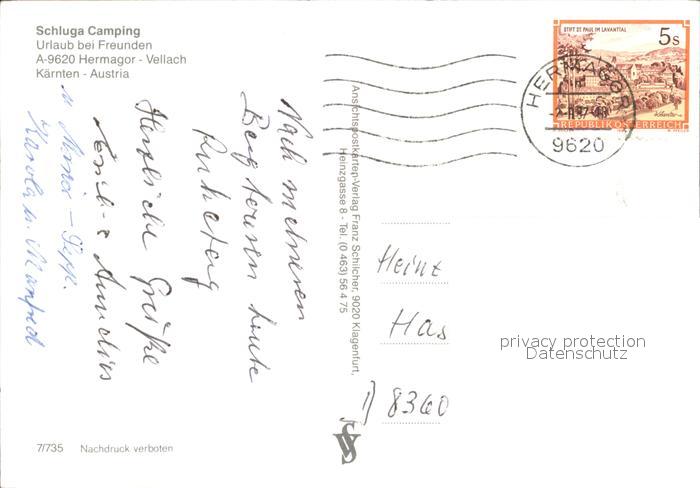 Schluga Camping
Urlaub bei Freunden
A-9620 Hermagor - Vellach
Kärnten - Austria
Nach mehreren
Bergtouren heute
Ruhetag
Herzliche Grüße
u.
Karola u. Manfred
7/735 Nachdruck verboten
Ansichtspostkarten-Verlag Franz Schilcher, 9020 Klagenfurt,
Heinzgasse 8 - Tel. (0 463) 56 4 75
STIFT ST. PAUL IM LAVANTTAL
5s
REPUBLIK ÖSTERREICH
HERMAGOR
9620
Heinz
Has
D 8360
privacy protection
Datenschutz